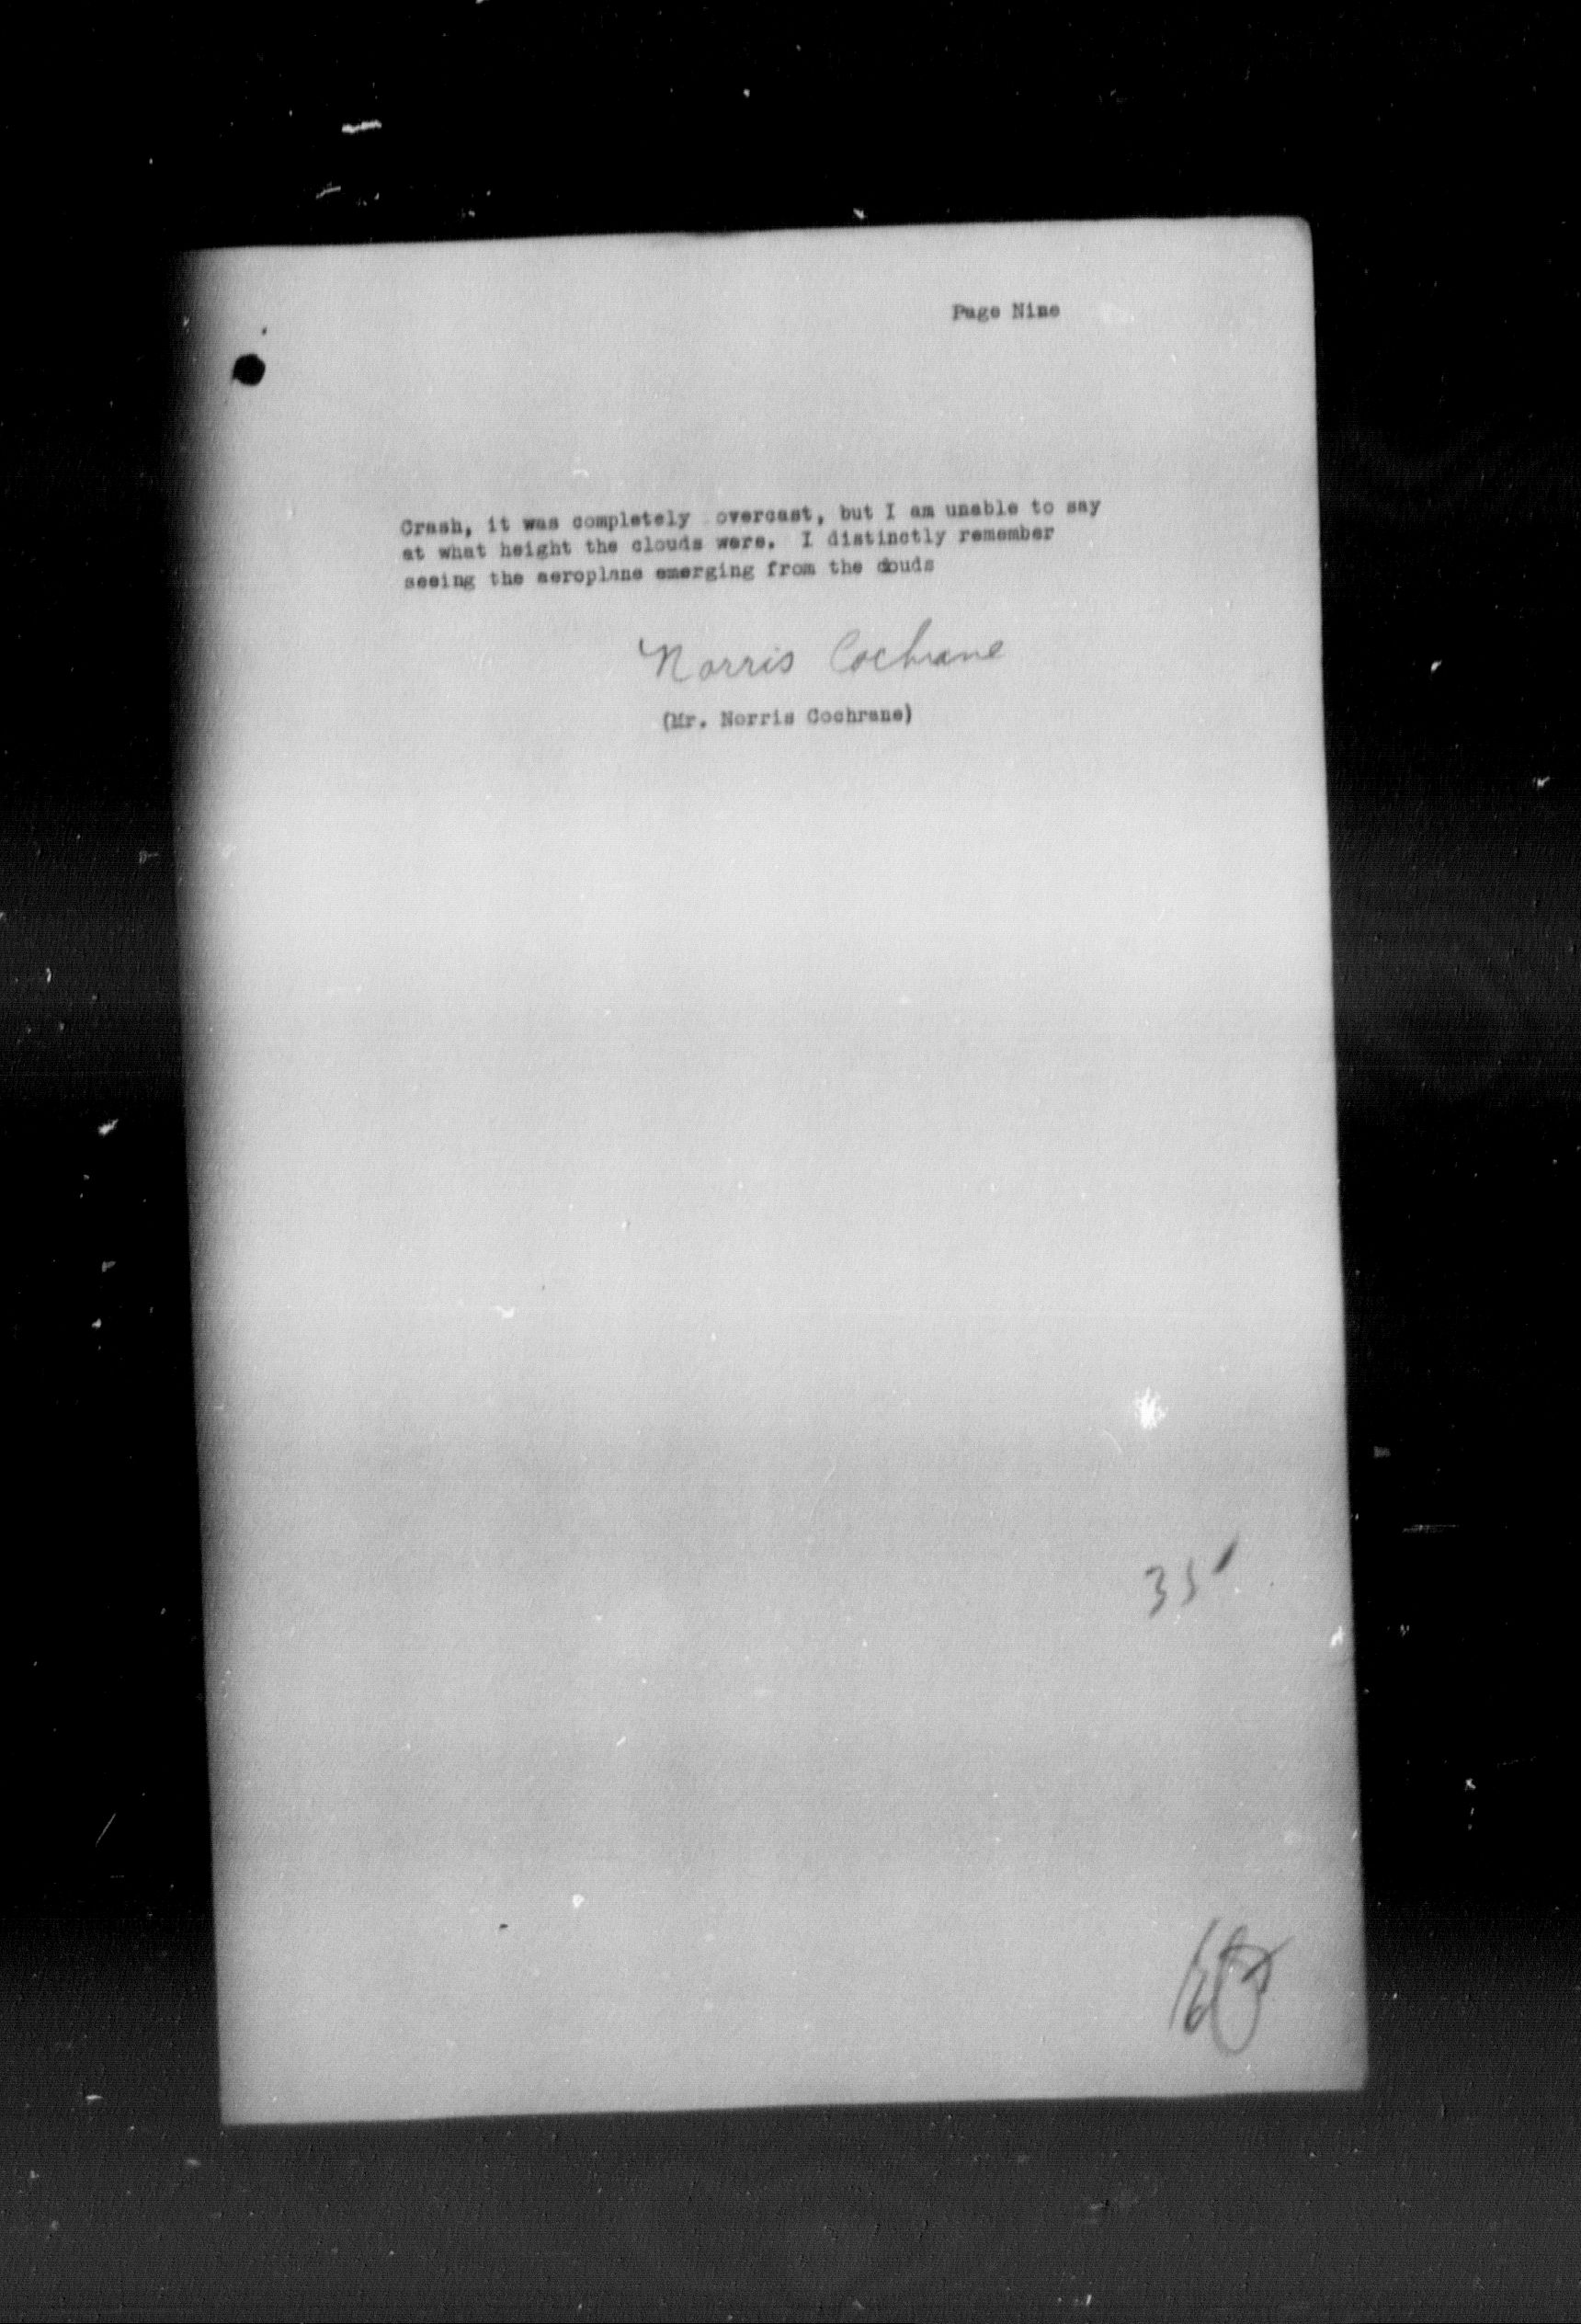 Page Nine
Crash, it was completely overcast, but I am unable to say
at what height the clouds were. I distinctly remember
seeing the aeroplane emerging from the douds
Norris Cochrane
(Mr. Norris Cochrane)
35